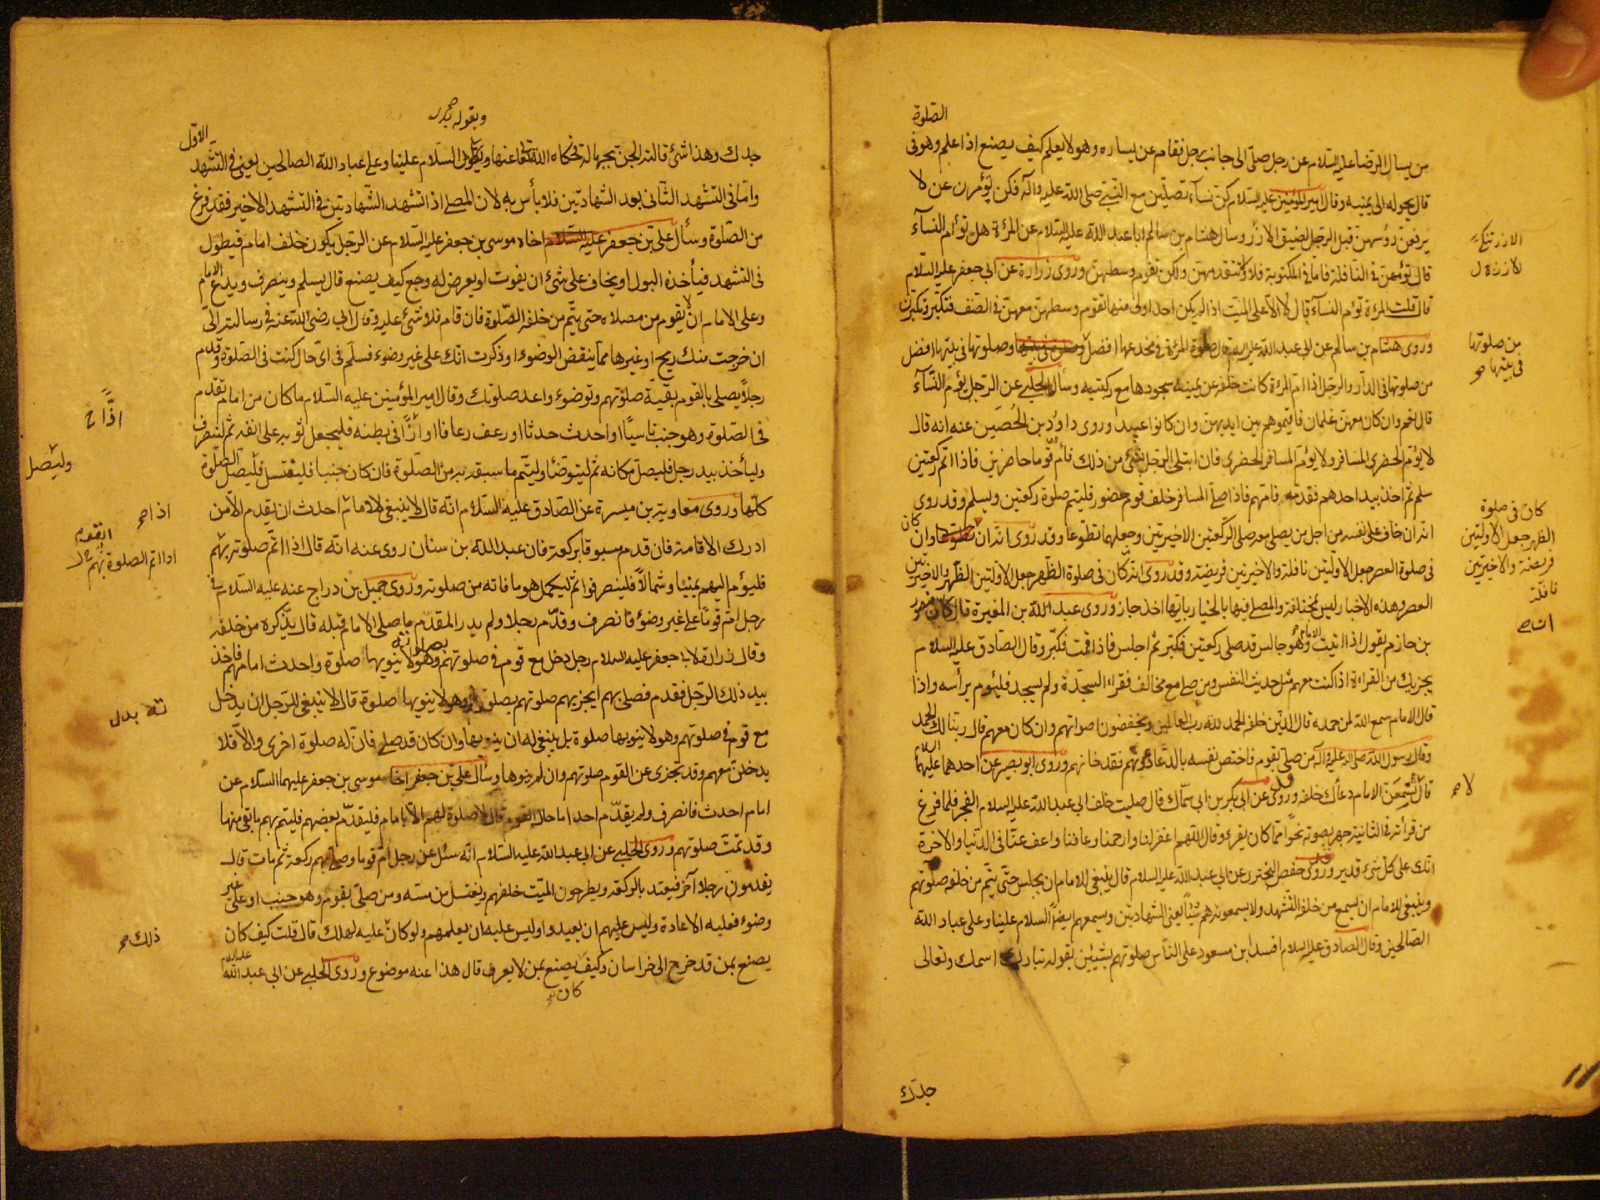 الصلوة
من يسال الرضا عليه السلام عن رجل صلى الى جانب رجل فقام عن يساره وهو لا يعلم كيف يصنع اذا علم وهو فى
قال يحوله الى يمينه وقال امير المؤمنين عليه السلام كن نساء يصلين مع النبى صلى الله عليه واله فكن يؤمرن ان لا
يرفعن رؤسهن قبل الرجال لضيق الازر وسال هشام بن سالم ابا عبد الله عليه السلام عن المرءة هل تؤم النساء
قال تؤمهن فى النافلة فاما فى المكتوبة فلا ولا تتقدمهن ولكن تقوم وسطهن وروى زرارة عن ابى جعفر عليه السلام
قال قلت المرءة تؤم النساء قال لا الا على الميت اذا لم يكن احد اولى منها تقوم وسطهن معهن فى الصف فتكبر ويكبرن
وروى هشام بن سالم عن ابى عبد الله عليه السلام قال صلوة المرءة فى مخدعها افضل وصلوتها فى بيتها افضل
من صلوتها فى الدار والرجل اذا ام المرءة كانت خلفه عن يمينه سجودها مع ركبتيه وسال الحلبى عن الرجل يؤم النساء
قال نعم وان كان معهن غلمان فاقيموهم بين ايديهن وان كانوا عبيدا وروى داود بن الحصين عنه انه قال
لا يؤم الحضرى المسافر ولا يؤم المسافر الحضرى فان ابتلى الرجل بشىء من ذلك فام قوما حاضرين فاذا اتم ركعتين
سلم ثم اخذ بيد احدهم فقدمه فامهم فاذا صلى المسافر خلف قوم حضور فليتم صلوة ركعتين ويسلم وقد روى
انه ان خاف على نفسه من اجل من يصلى معه صلى الركعتين الاخيرتين وجعلهما تطوعا وقد روى انه ان كان
فى صلوة العصر جعل الاوليتين نافلة والاخيرتين فريضة وقد روى انه ان كان فى صلوة الظهر جعل الاولتين الظهر والاخيرتين
العصر وهذه الاخبار ليس بمختلفة والمصلى فيها بالخيار بايها اخذ جاز وروى عبد الله بن المغيرة قال كان منصور
بن حازم يقول اذا اتيت الامام وهو جالس قد صلى ركعتين فكبر ثم اجلس فاذا قمت فكبر وقال الصادق عليه السلام
يجزيك من القراءة اذا كنت معهم مثل حديث النفس ومن صلى مع مخالف فقراء السجدة ولم يسجد فليؤم براسه واذا
قال الامام سمع الله لمن حمده قال الذين خلفه الحمد لله رب العالمين ويخفضون اصواتهم وان كان معهم قال ربنا لك الحمد
وقال رسول الله صلى الله عليه واله من صلى بقوم فاختص نفسه بالدعاء دونهم فقد خانهم وروى ابو بصير عن احدهما عليهما السلام
قال لا تسمعن الامام دعاك خلفه وروى عن ابى بكر بن ابى سمال قال صليت خلف ابى عبد الله عليه السلام الفجر فلما فرغ
من قرائته فى الثانية جهر بصوته نحوا مما كان يقرء وقال اللهم اغفر لنا وارحمنا وعافنا واعف عنا فى الدنيا والاخرة
انك على كل شىء قدير وروى حفص بن البخترى عن ابى عبد الله عليه السلام قال ينبغى للامام ان يجلس حتى يتم من خلفه صلوتهم
وينبغى للامام ان يسمع من خلفه التشهد ولا يسمعونه هم شيئا يعنى الشهادتين ويسمعهم ايضا السلام علينا وعلى عباد الله
الصالحين وقال الصادق عليه السلام افسد ابن مسعود على الناس صلوتهم بشيئين بقوله تبارك اسمك وتعالى
جدك
من صلوتها
فى بيتها صح
كان فى صلوة
الظهر جعل الاولتين
فريضة والاخيرتين
نافلة
لا صح
وبقوله
الاول
جدك وهذا شىء قالته الجن بجهالة فحكاه الله تعالى عنها وبقول السلام علينا وعلى عباد الله الصالحين يعنى فى التشهد
واما فى التشهد الثانى بعد الشهادتين فلا باس به لان المصلى اذا تشهد الشهادتين فى التشهد الاخير فقد فرغ
من الصلوة وسال على بن جعفر عليه السلام اخاه موسى بن جعفر عليه السلام عن الرجل يكون خلف امام فيطول
فى التشهد فياخذه البول او يخاف على شىء ان يفوت او يعرض له وجع كيف يصنع قال يسلم وينصرف ويدع الامام
وعلى الامام ان لا يقوم من مصلاه حتى يتم من خلفه الصلوة فان قام فلا شىء عليه وقال ابى رضى الله عنه فى رسالته الى
ان خرجت منك ريح او غيرها مما ينقض الوضوء او ذكرت انك على غير وضوء فسلم فى اى حال كنت فى الصلوة وقدم
رجلا يصلى بالقوم بقية صلوتهم وتوضوء واعد صلوتك وقال امير المؤمنين عليه السلام ما كان من امام تقدم
فى الصلوة وهو جنب ناسيا او احدث حدثا او رعف رعافا او ازا فى بطنه فليجعل ثوبه على انفه ثم لينصرف
ولياخذ بيد رجل فليصل مكانه ثم ليتوضا وليتم ما سبقه به من الصلوة فان كان جنبا فليغتسل فليصل الصلوة
كلها وروى معاوية بن ميسرة عن الصادق عليه السلام انه قال لا ينبغى للامام اذا احدث ان يقدم الا من
ادرك الاقامة فان قدم مسبوقا بركعة فان عبد الله بن سنان روى عنه انه قال اذا اتم صلوته بهم
فليؤم اليهم يمينا وشمالا فلينصرفوا ثم ليكمل هو ما فاته من صلوته وروى جميل بن دراج عنه عليه السلام فى
رجل ام قوما على غير وضوء فانصرف وقدم رجلا ولم يدر المقدم ما صلى الامام قبله قال يذكره من خلفه
وقال زرارة لابى جعفر عليه السلام رجل دخل مع قوم فى صلوتهم وهو لا ينويها صلوة واحدث امامهم فاخذ
بيد ذلك الرجل فقدمه فصلى بهم ايجزيهم صلوتهم بصلوته وهو لا ينويها صلوة قال لا ينبغى للرجل ان يدخل
مع قوم فى صلوتهم وهو لا ينويها صلوة بل ينبغى له ان ينويها وان كان قد صلى فان له صلوة اخرى والا فلا
يدخلن معهم وقد تجزى عن القوم صلوتهم وان لم ينوها وسال على بن جعفر اخاه موسى بن جعفر عليهما السلام عن
امام احدث فانصرف ولم يقدم احدا ما حال القوم قال لا صلوة لهم الا بامام فليقدم بعضهم فليتم بهم ما بقى منها
وقد تمت صلوتهم وروى الحلبى عن ابى عبد الله عليه السلام انه سئل عن رجل ام قوما وصلى بهم ركعة ثم مات قال
يقدمون رجلا اخر فيعتد بالركعة ويطرحون الميت خلفهم ويغتسل من مسه ومن صلى بقوم وهو جنب او على غير
وضوء فعليه الاعادة وليس عليهم ان يعيدوا وليس عليه ان يعلمهم ولو كان عليه لهلك قال قلت كيف كان
يصنع بمن قد خرج الى خراسان وكيف يصنع بمن لا يعرف قال هذا عنه موضوع وروى الحلبى عن ابى عبد الله عليه السلام
كان
وليصل
اذا صح
القوم
اذا اتم الصلوة بهم
ته بدل
ذلك صح